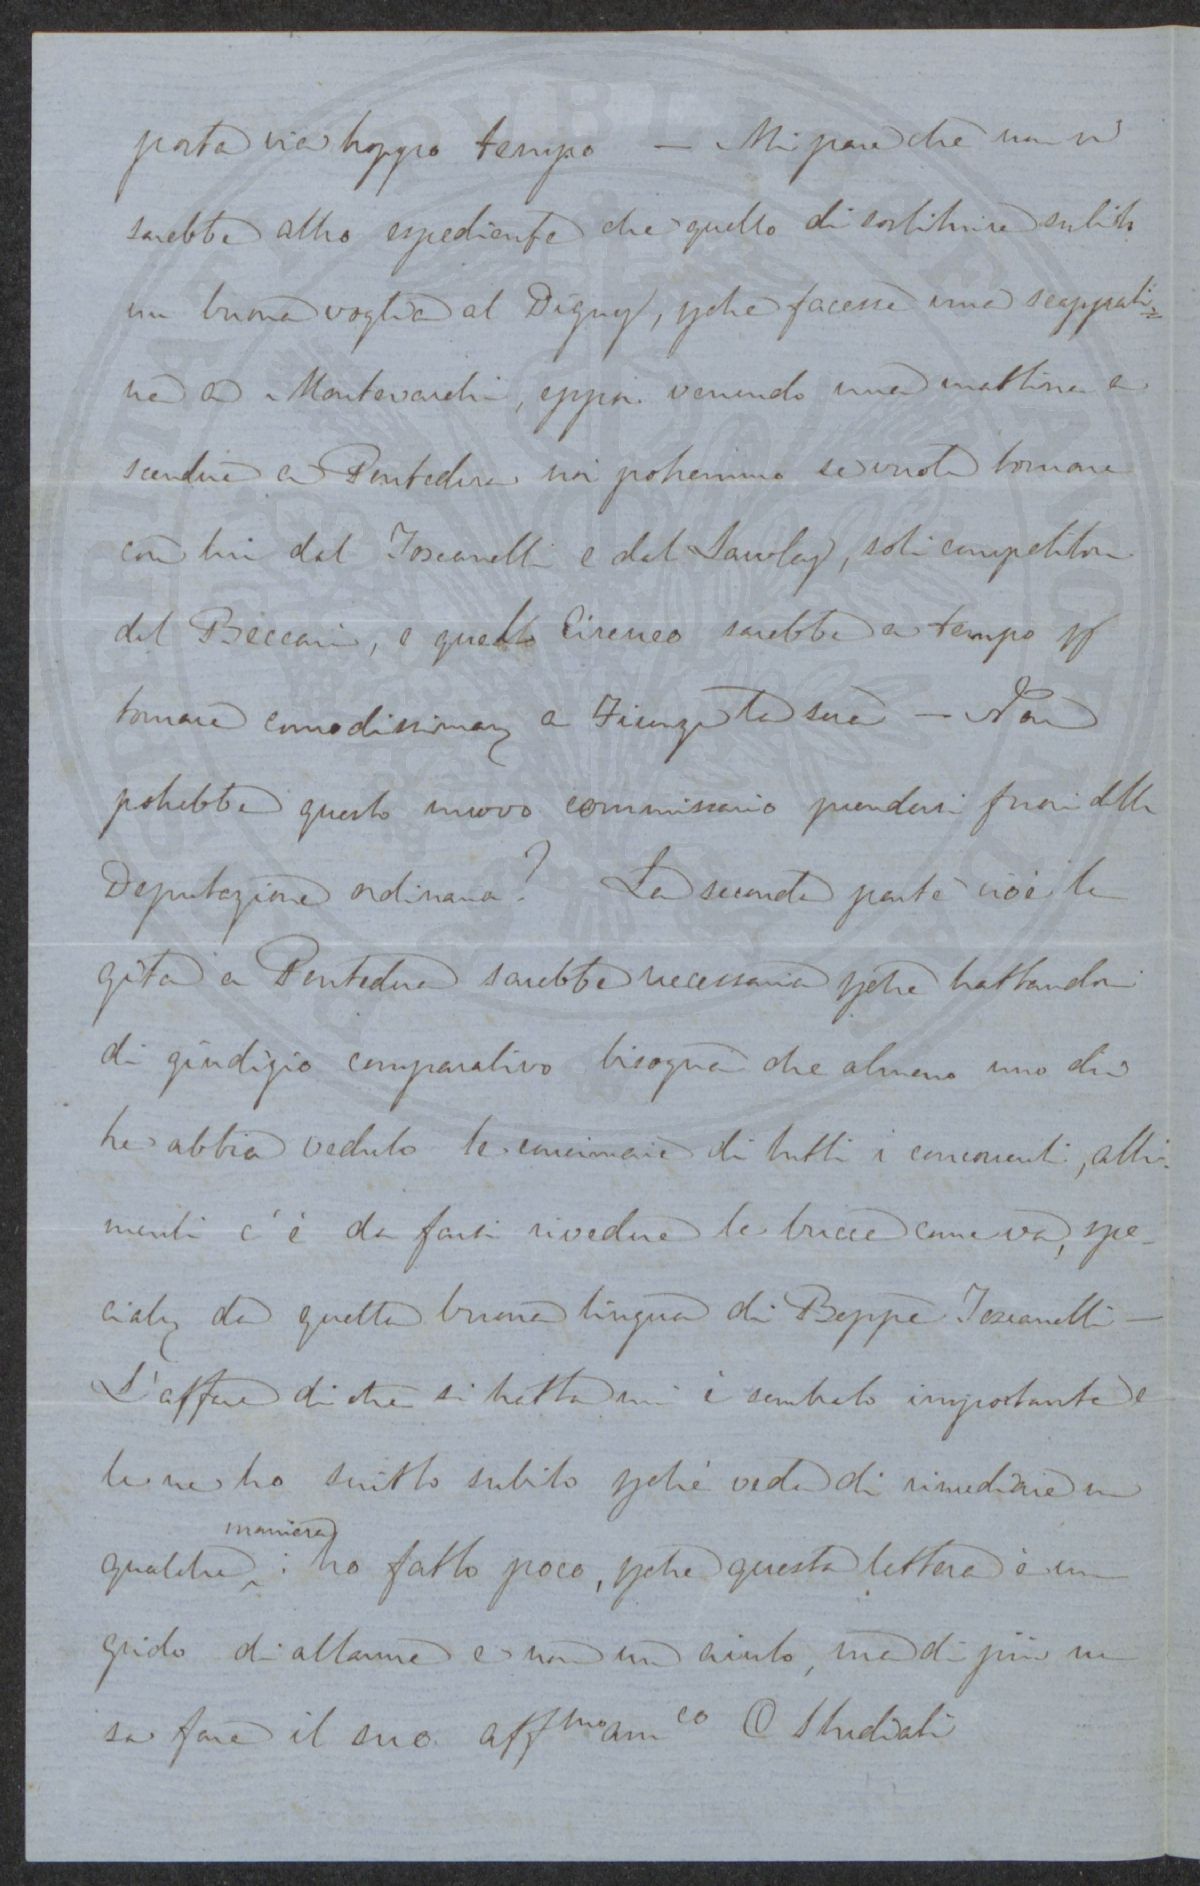 porta via troppo tempo — Mi pare che non vi
sarebbe altro espediente che quello di sostituire subito
un buona voglia al Digny, pche facesse una scappati=
na a Montevarchi, eppoi venendo una mattina a
scendere a Pontedera noi potremmo se vuole tornare
con lui dal Toscanelli e dal Lawley, soli competitori
del Beccari, e quello Cireneo sarebbe a tempo p
tornare comodissimam a Firenze la sera — Non
potrebbe questo nuovo commissario prendersi fuori della
Deputazione ordinaria? La seconda parte cioè la
gita a Pontedera sarebbe necessaria pche trattandosi
di giudizio comparativo bisogna che almeno uno di
tre abbia veduto le concimaie di tutti i concorrenti, altri-
menti c'è da farsi rivedere le bucce come va, spe-
cialm da quella buona lingua di Beppe Toscanelli —
L'affare di che si tratta mi è sembrato importante e
le ne ho scritto subito pché veda di rimediare in
qualche maniera: ho fatto poco, pche questa lettera è un
grido di allarme e non un aiuto, ma di più non
sa fare il suo affmo amco C Studiati